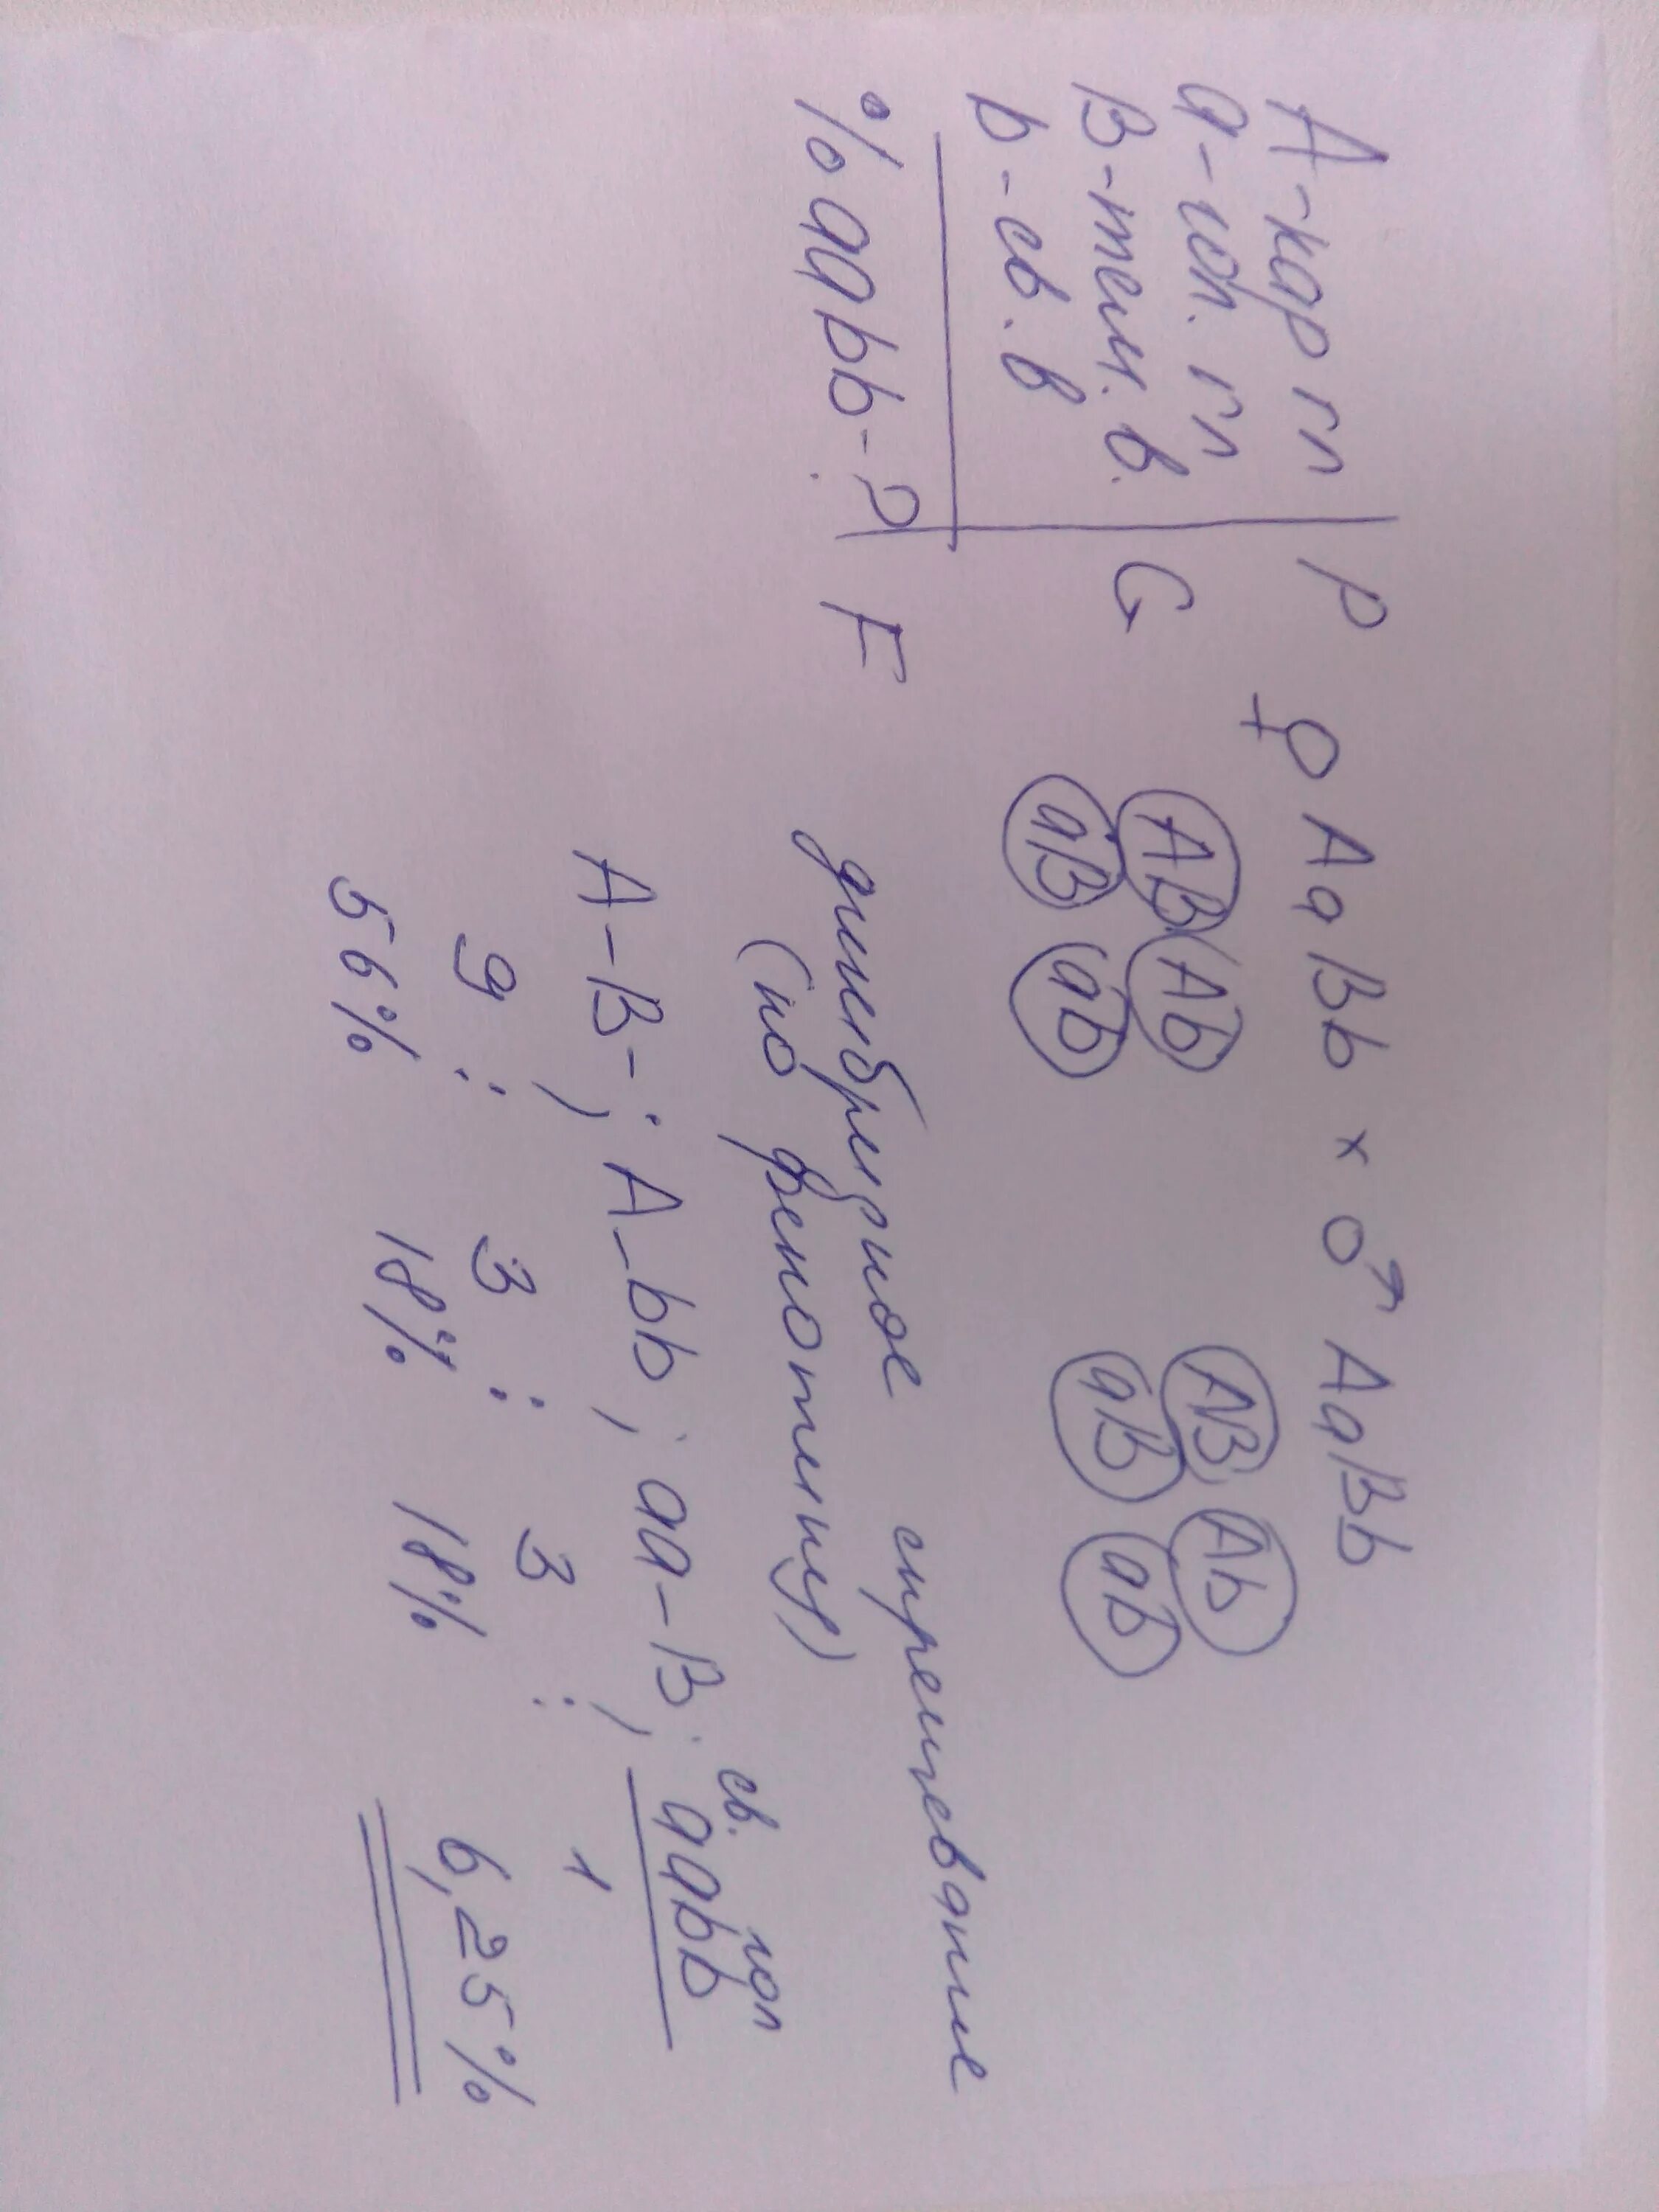 А-кар гл
а-гол. гл
В-тем. в.
b-св. в
% aabb-?
P ♀ AaBb × ♂ AaBb
G AB Ab AB Ab
aB ab aB ab
F дигибридное скрещивание
(по фенотипу)
св. гол
A-B-; A_bb; aa-B; aabb
9 : 3 : 3 : 1
56% 18% 18% 6,25%